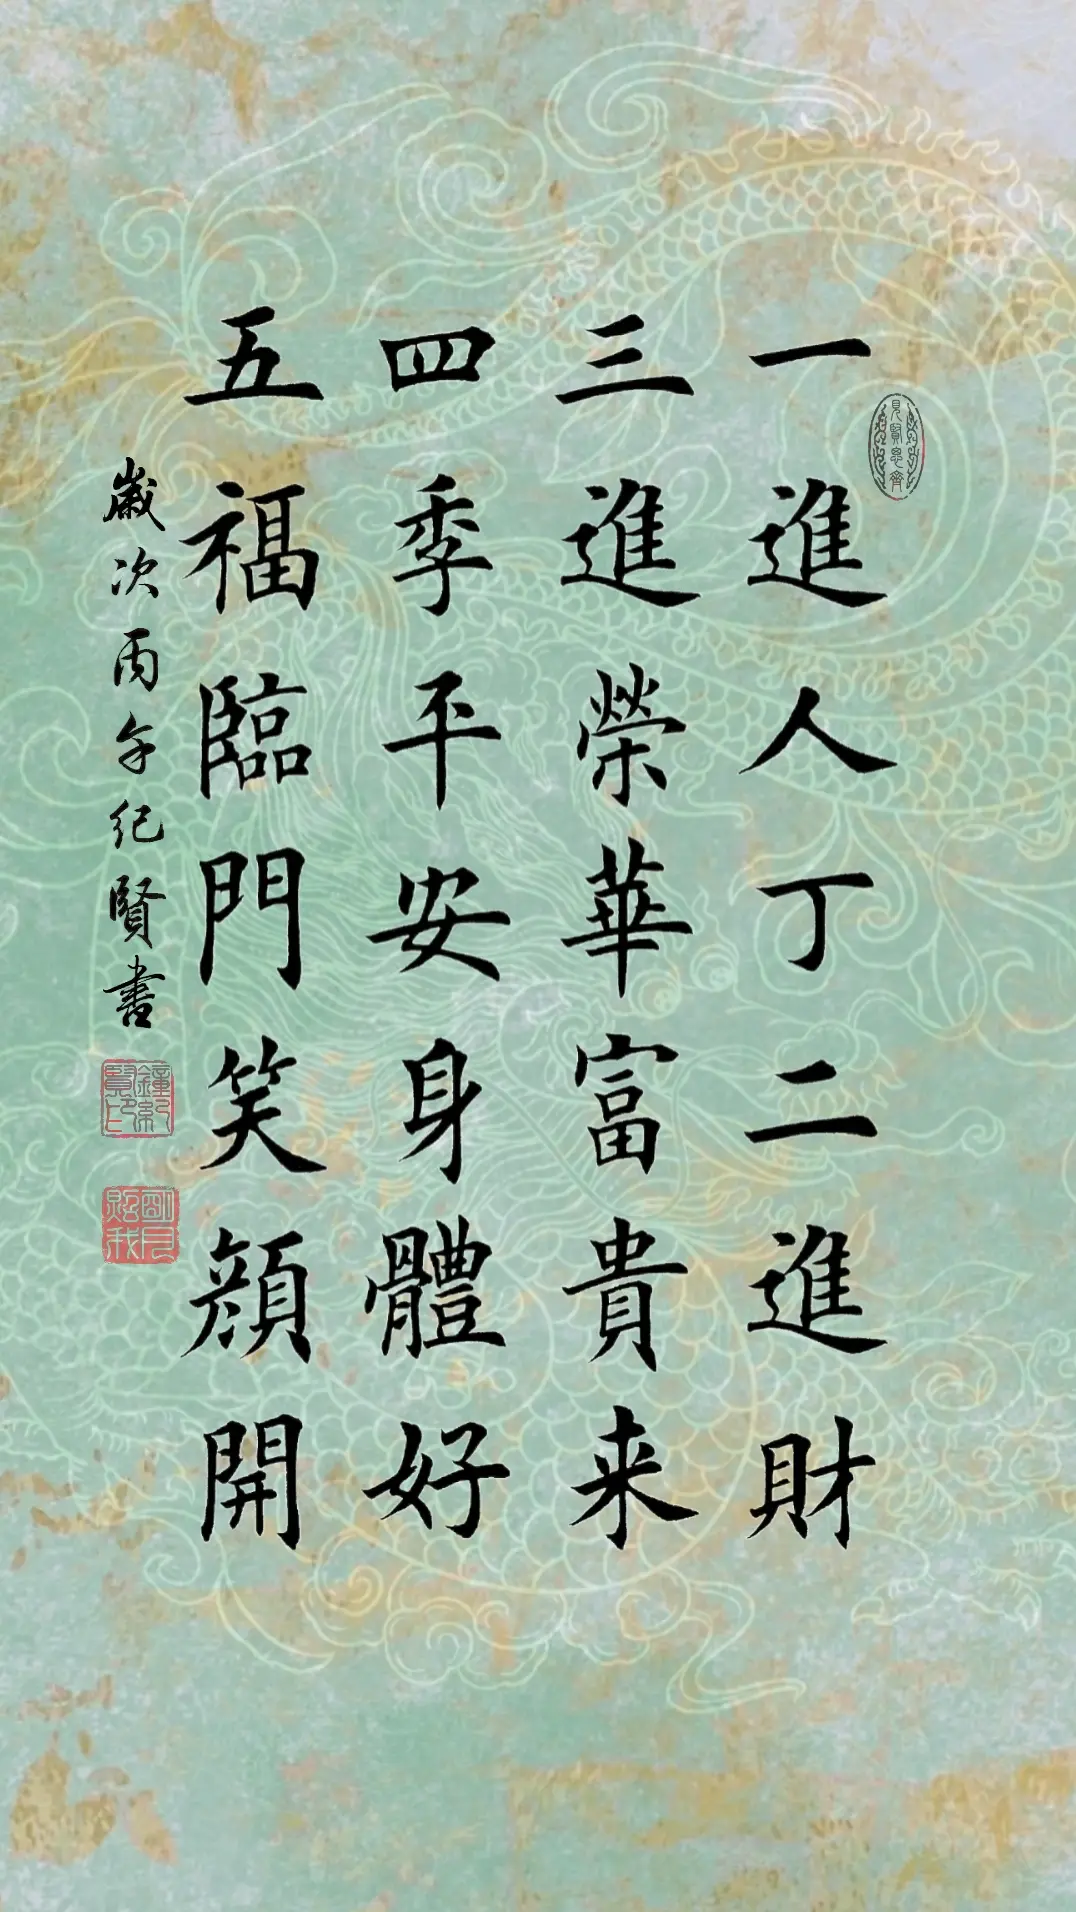 一進人丁二進財
三進榮華富貴来
四季平安身體好
五福臨門笑顔開
歲次丙午纪賢書
見賢思齊
鐘紀賢印